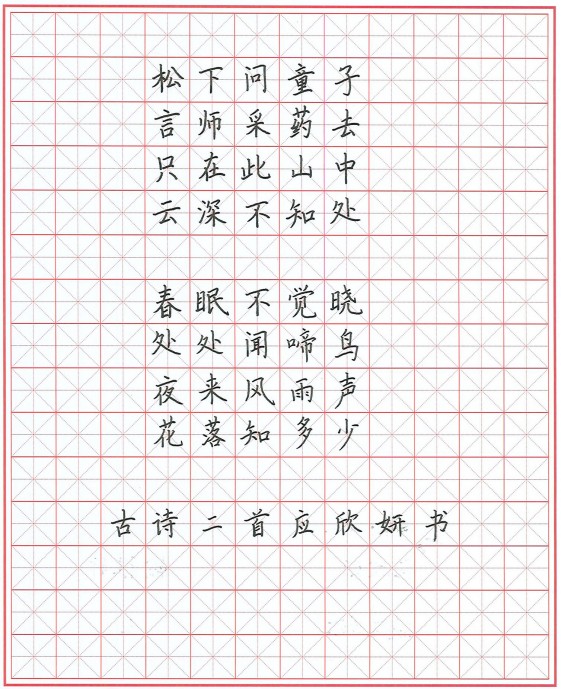 松下问童子
言师采药去
只在此山中
云深不知处
春眠不觉晓
处处闻啼鸟
夜来风雨声
花落知多少
古诗二首应欣妍书